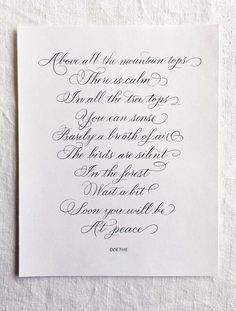 Above all the mountain tops
There is calm
In all the tree tops
You can sense
Barely a breath of air
The birds are silent
In the forest
Wait a bit
Soon you will be
At peace
GOETHE